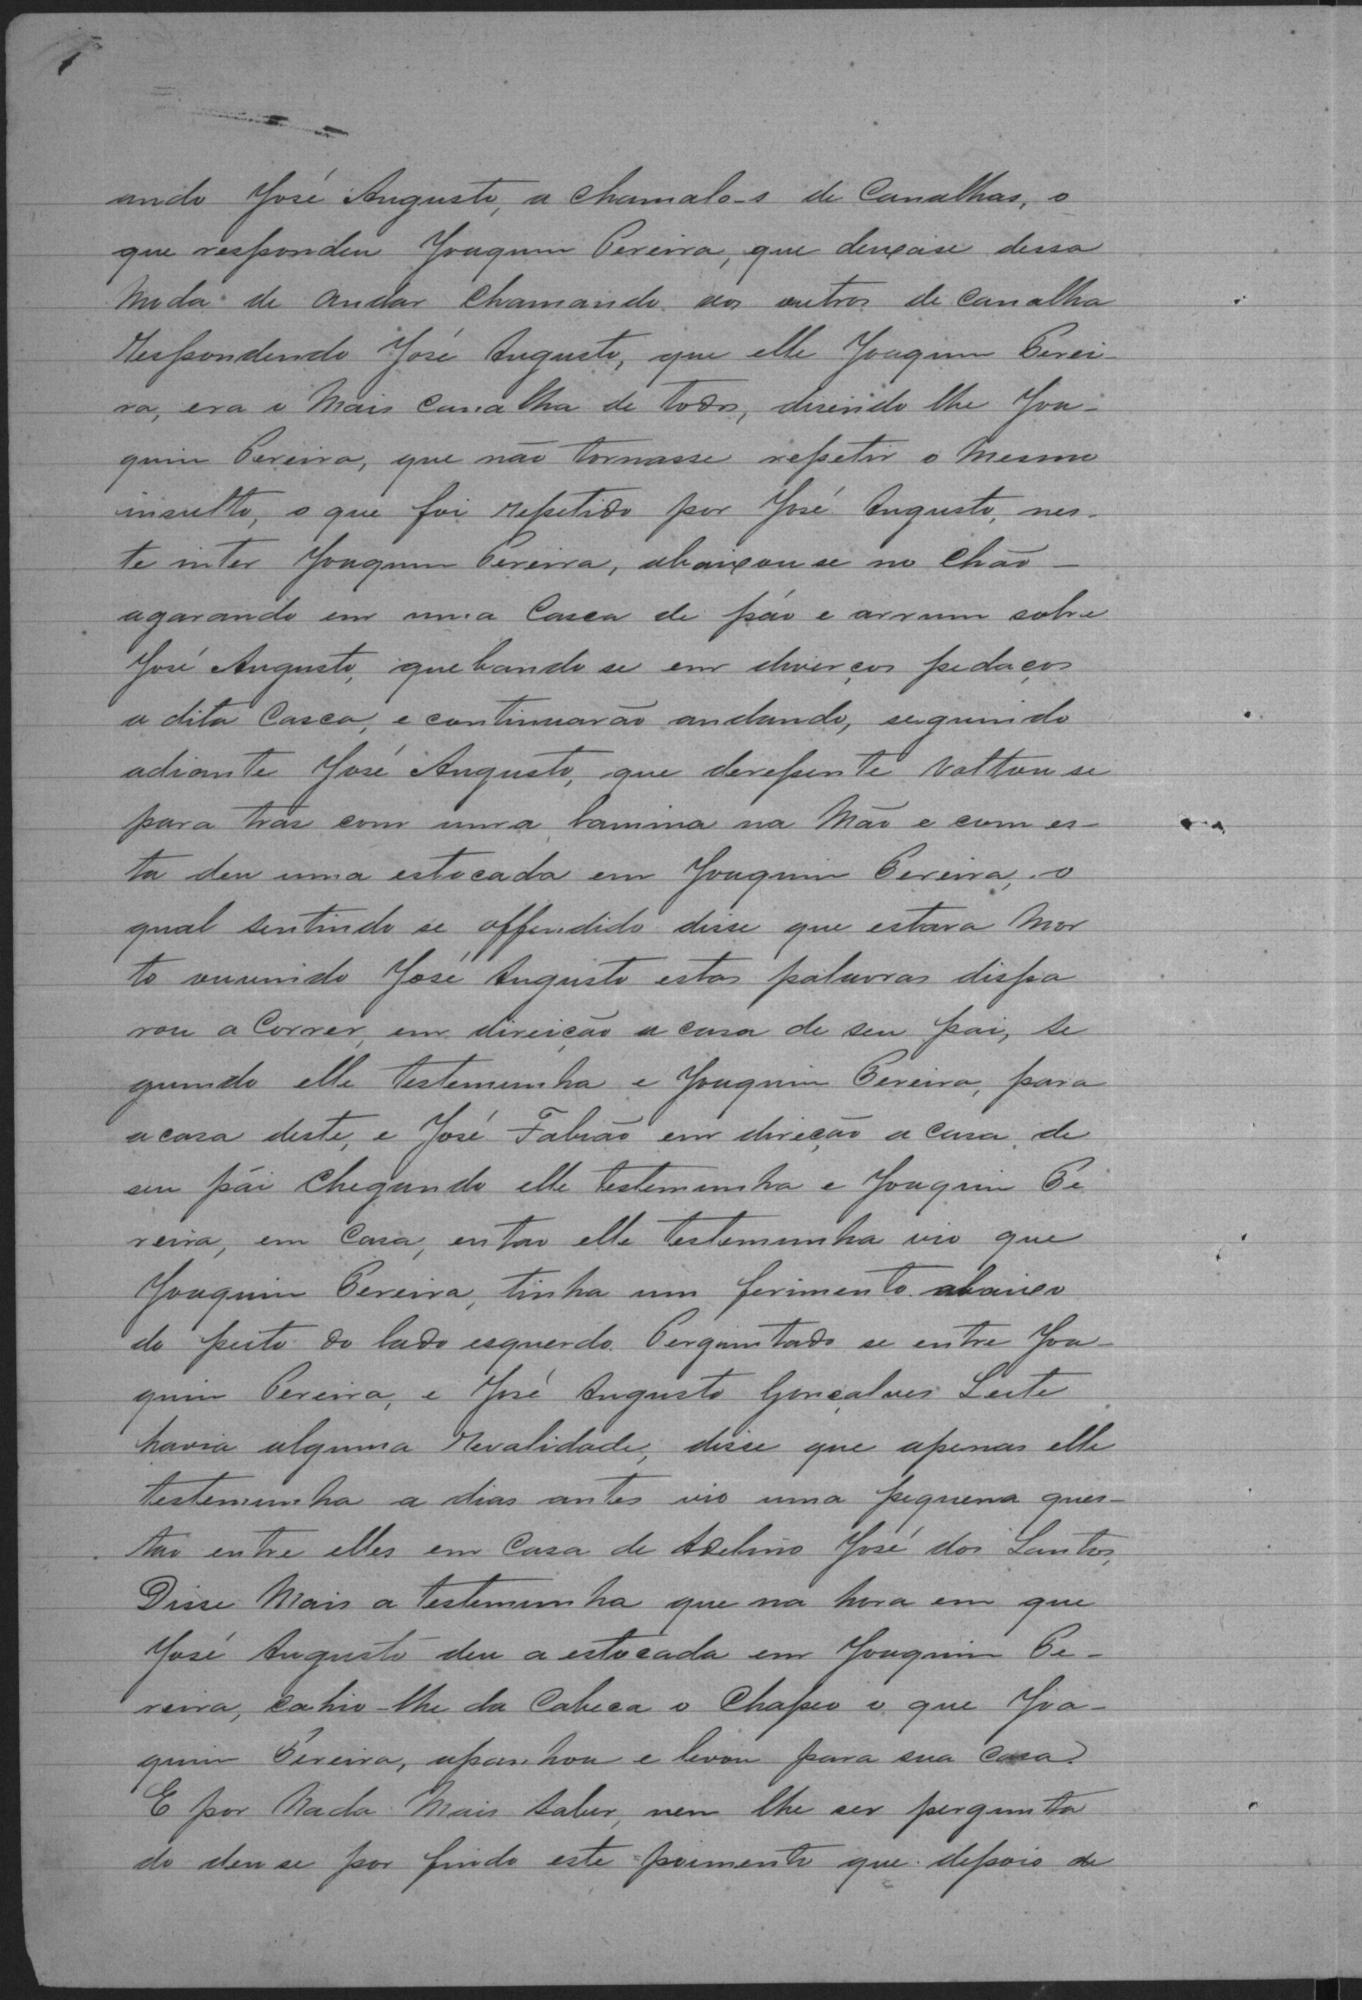 ando José Augusto, a chamalo-s de Canalhas, o
que respondeu Joaquim Pereira, que deixase dessa
moda de andar chamando aos outros de canalha
respondendo José Augusto, que elle Joaquim Perei-
ra, era o mais canalha de todos, disendo lhe Joa-
quim Pereira, que não tornasse repetir o mesmo
insulto, o que foi repetido por José Augusto, nes-
te inter Joaquim Pereira, abaixou se no chão -
agarando em uma Casca de páo e arrum sobre
José Augusto, quebando se em diverços pedaços
a dita Casca, e continuarão andando, seguindo
adiante José Augusto, que derepente voltou se
para tras com uma lamina na mão e com es-
ta deu uma estocada em Joaquim Pereira, o
qual sentindo se offendido disse que estava mor
to ouvindo José Augusto estas palavras dispa
rou a correr, em direição a casa de seu pai, se
guindo elle testemunha e Joaquim Pereira, para
a casa deste, e José Fabião em direção a casa de
seu pái chegando elle testemunha e Joaquim Pe
reira, em casa, entao elle testemunha vio que
Joaquim Pereira, tinha um ferimento abaixo
do peito do lado esquerdo. Perguntado se entre Joa-
quim Pereira, e José Augusto Gonçalves Leite
havia alguma revalidade, disse que apenas elle
testemunha a dias antes vio uma pequena ques-
tao entre elles em Casa de Adelino José dos Santos,
Disse mais a testemunha que na hora em que
José Augusto deu a estocada em Joaquim Pe-
reira, cahio-lhe da Cabeca o Chapeo o que Joa-
quim Pereira, apanhou e levou para sua casa.
E por nada mais saber, nem lhe ser pergunta
do deu se por findo este poimento que depois de